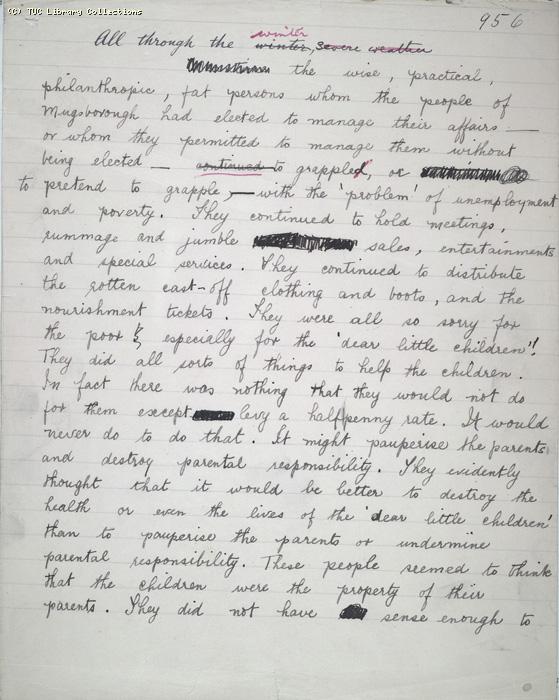 (C) TUC Library Collections
956
winter
All through the winter, severe weather
the wise, practical,
philanthropic, fat persons whom the people of
Mugsborough had elected to manage their affairs —
or whom they permitted to manage them without
being elected — continued to grappled, or
to pretend to grapple, — with the 'problem' of unemployment
and poverty. They continued to hold meetings,
rummage and jumble sales, entertainments
and special services. They continued to distribute
the rotten cast-off clothing and boots, and the
nourishment tickets. They were all so sorry for
the poor, especially for the 'dear little children'!
They did all sorts of things to help the children.
In fact there was nothing that they would not do
for them except levy a halfpenny rate. It would
never do to do that. It might pauperise the parents
and destroy parental responsibility. They evidently
thought that it would be better to destroy the
health or even the lives of the 'dear little children'
than to pauperise the parents or undermine
parental responsibility. These people seemed to think
that the children were the property of their
parents. They did not have sense enough to